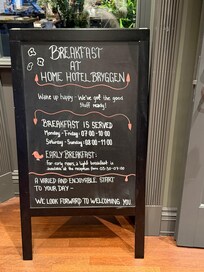 BREAKFAST
AT
HOME HOTEL BRYGGEN
Wake up happy - We've got the good
stuff ready!
BREAKFAST IS SERVED
Monday - Friday : 07:00 - 10:00
Saturday - Sunday : 08:00 - 11:00
EARLY BREAKFAST:
For early risers, a light breakfast is
available at the reception from 05:30-07:00
A VARIED AND ENJOYABLE START
TO YOUR DAY -
WE LOOK FORWARD TO WELCOMING YOU